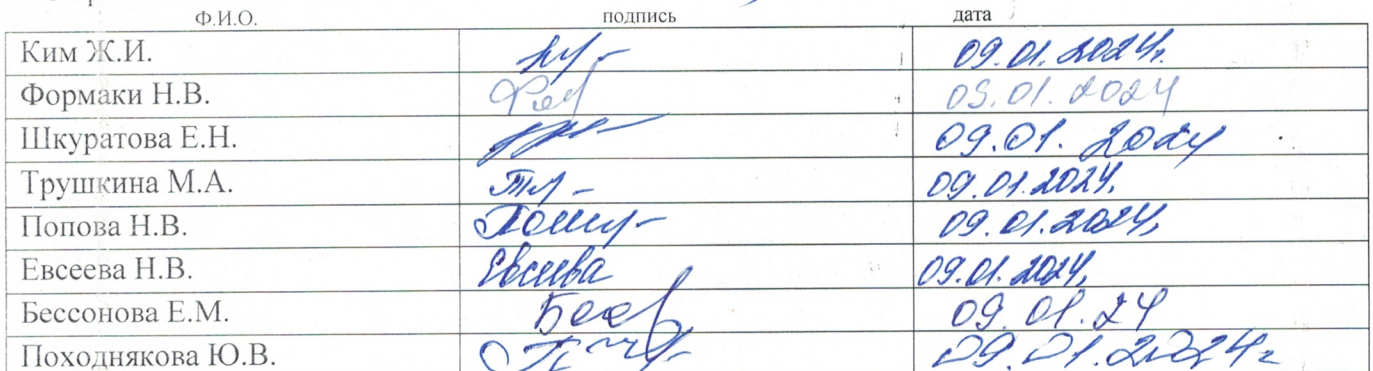 Ф.И.О. подпись дата
Ким Ж.И. 09.01.2024г.
Формаки Н.В. 09.01.2024
Шкуратова Е.Н. 09.01.2024
Трушкина М.А. 09.01.2024г.
Попова Н.В. 09.01.2024г.
Евсеева Н.В. Евсеева 09.01.2024г.
Бессонова Е.М. 09.01.24
Походнякова Ю.В. 09.01.2024г